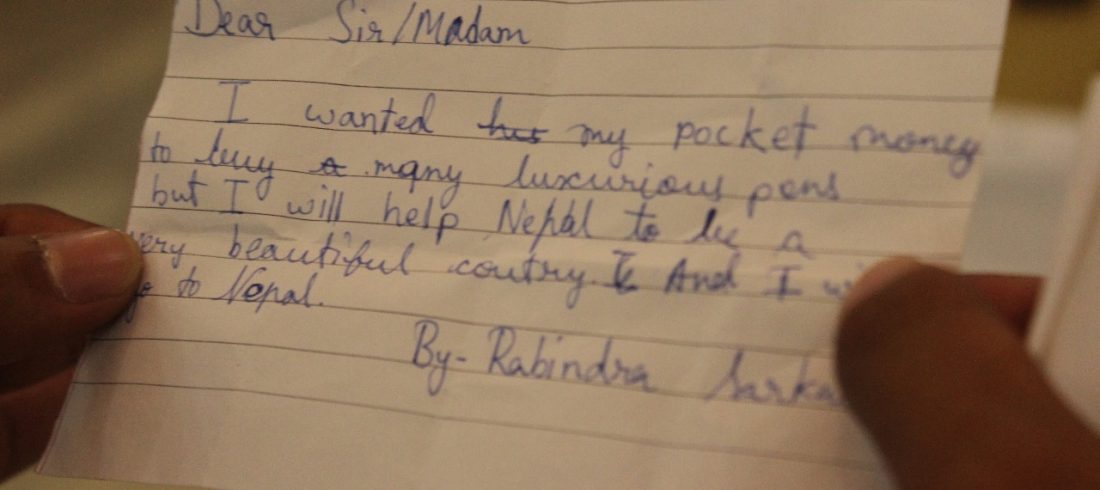 Dear Sir/Madam
I wanted my pocket money
to buy many luxurious pens
but I will help Nepal to be a
very beautiful coutry. And I
to Nepal.
By- Rabindra Sarka